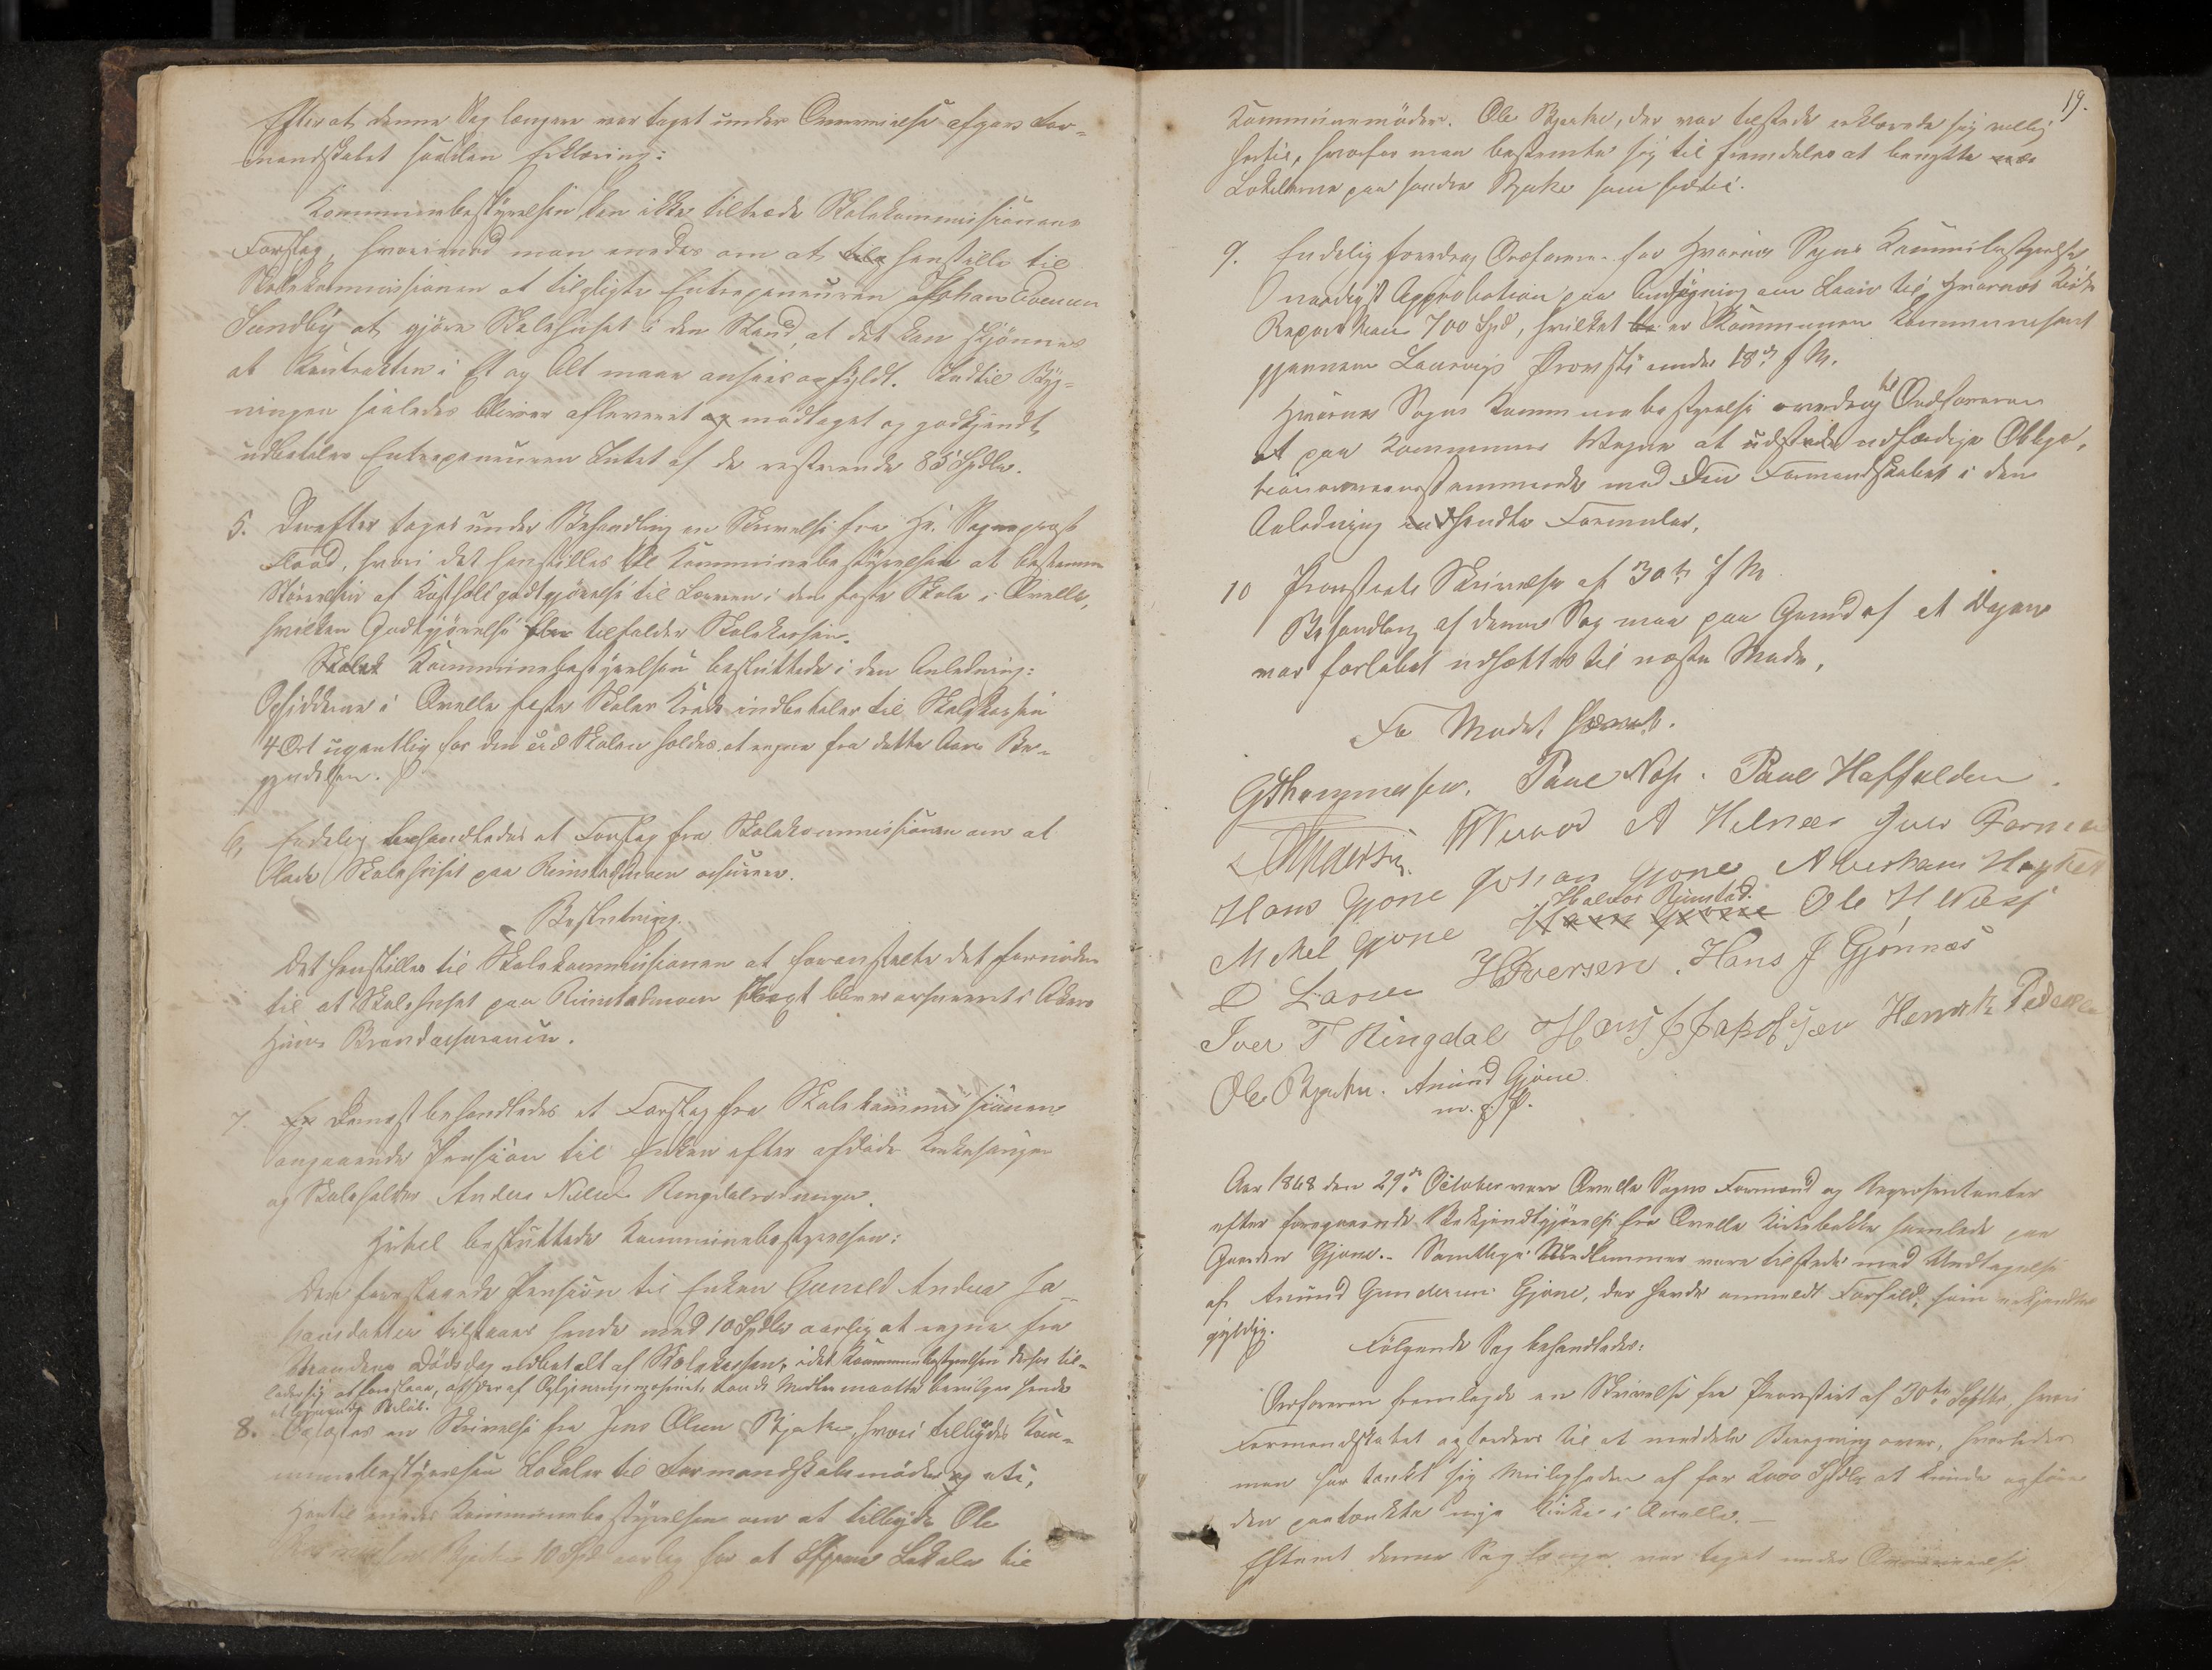 Efterat denne Sag længere var taget under Overveielse afgav For-
mandskabet saadan Erklæring:
Kommunebestyrelsen kan ikke tiltræde Skolekommissionens
Forslag, hvorimod man enedes om at henstille til
Skolekommissionen at tilpligte Entrepeneuren Johan Evensen
Sundby at gjøre Skolehuset i den Stand, at det kan skjønnes
at Kontrakten i Et og Alt maa ansees opfyldt. Indtil Byg-
ningen saaledes bliver afleveret og modtaget og godkjendt,
udbetales Entrepeneuren Intet af de resterende 85 Spdlr.
5. Derefter toges under Behandling en Skrivelse fra Hr. Sogneprest
Flood, hvori det henstilles til Kommunebestyrelsen at bestemme
Størrelsen af Kostholdgodtgjørelse til Læreren i den faste Skole i Qvelle,
hvilken Godtgjørelse tilfalder Skolekassen.
Kommunebestyrelsen besluttede i den Anledning:
Opsidderne i Qvelle faste Skoles Kreds indbetaler til Skolekassen
4 Ort ugentlig for den Tid Skolen holdes at regne fra dette Aars Be-
gyndelsen.
6, Endelig behandledes et Forslag fra Skolekommissionen om at
lade Skolehuset paa Rimstadmoen assurere.
Beslutning.
Det henstilles til Skolekommissionen at foranstalte det fornødne
til at Skolehuset paa Rimstadmoen bliver assureret i
Brandassurancen.
7. Dernæst behandledes et Forslag fra Skolekommissionen
angaaende Pension til Enken efter afdøde Kirkesanger
og Skoleholder Anders Nilsen Ringdalsrødningen.
Hertil besluttede Kommunebestyrelsen:
Den foreslaaede Pension til Enken Gunild Andrea Jo-
hansdatter tilstaaes hende med 10 Spdlr aarlig at regne fra
Mandens Dødsdag udbetalt af Skolekassen, idet Kommunebestyrelsen derfor til-
lader sig at foreslaae, at der af Oplysningsvæsenets Fonds Midler maatte bevilges hende
et lignende Beløb.
8. Oplæstes en Skrivelse fra Jens Olsen Bjerke, hvori tilbydes Kom-
munebestyrelsen Lokaler til Formandskabsmøder og
Hertil enedes Kommunebestyrelsen om at tilbyde Ole
Bjerke 10 Spd aarlig for at Lokaler til
19.
Kommunemøder. Ole Bjerke, der var tilstede erklærede sig villig
hertil, hvorfor man bestemte sig til fremdeles at benytte
Lokalerne paa søndre Bjerke som hidtil.
9. Endelig foredrog Ordføreren for Hvarnes Sogns Kommunebestyrelse
naadigst Approbation paa Ansøgning om Laan til Hvarnes Kirkes
Reparation 700 Spd, hvilket er Kommunen Kommuniceret
gjennem Laurvigs Provsti under 18de f. M.
Hvarnes Sogns Kommunebestyrelse overdrog til Ordføreren
at paa Kommunens Vegne at udfærdige Obliga-
tion overensstemmende med den Formandskabet i den
Anledning tilsendte Formular.
10 Provstiets Skrivelse af 30te f M
Behandling af denne Sag maa paa Grund af at Dagen
var forløbet udsættes til næste Møde.
Mødet hævet.
G Thommesen. Paul Næss. Paul Hafsalden
A Helnæs Iver
Hans Gjone Johan Gjone Abraham
Halvor Rimstad.
Mikel Gjone Ole H Næss
O Larsen H Iversen. Hans J Gjönnæs
Iver T Ringdal Hans J Jakobsen Henrik Pedersen
Ole Bjerke. Anund Gjone
m. p. P.
Aar 1868 den 29de October vare Qvelle Sogns Formænd og Repræsentanter
efter foregaaende Bekjendtgjørelse fra Qvelle Kirkebakke samlede paa
Gaarden Gjone. Samtlige Medlemmer vare tilstede med Undtagelse
af Anund Gundersen Gjone, der havde anmeldt Forfald, som erkjendtes
gyldig.
Følgende Sag behandledes:
Ordføreren fremlagde en Skrivelse fra Provstiet af 30te Septbr, hvori
Formandskabet opfordres til at meddele Beregning over, hvorledes
man har tænkt sig Muligheden af for 2000 Spdlr at kunde opføre
den paatænkte nye Kirke i Qvelle.
Efterat denne Sag længe var taget under Overveielse